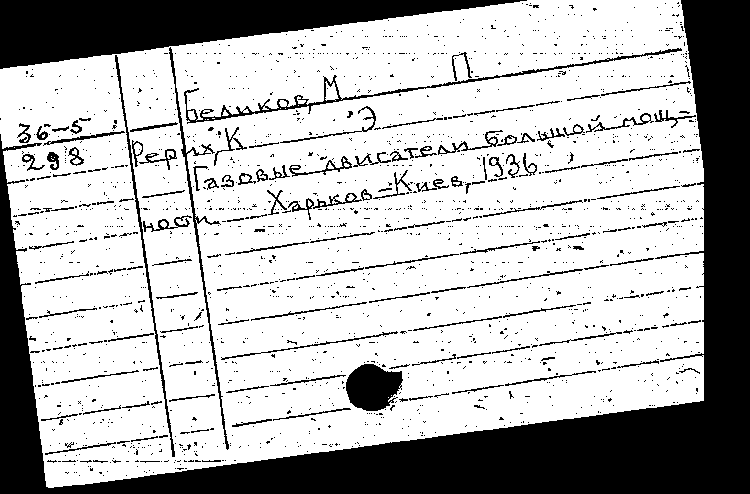 Беликов, М П
36-5
298
Рерих, К Э
Газовые двигатели большой мощ=
ности. Харьков-Киев, 1936